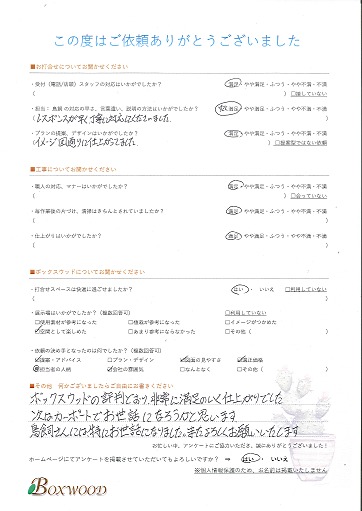 この度はご依頼ありがとうございました
■お打合せについてお聞かせください
・受付（電話/店頭）スタッフの対応はいかがでしたか？ 満足・やや満足・ふつう・やや不満・不満
( )□接していない
・担当： 鳥飼 の対応の早さ、言葉遣い、説明の方法はいかがでしたか？ 満足・やや満足・ふつう・やや不満・不満
(レスポンスが早く丁寧に対応してくださいました。
・プランの提案、デザインはいかがでしたか？ 満足・やや満足・ふつう・やや不満・不満
(イメージ図通りに仕上がってました。 )□提案型ではない依頼
■工事についてお聞かせください
・職人の対応、マナーはいかがでしたか？ 満足・やや満足・ふつう・やや不満・不満
( )□会っていない
・毎作業後の片づけ、清掃はきちんとされていましたか？ 満足・やや満足・ふつう・やや不満・不満
(
・仕上がりはいかがでしたか？ 満足・やや満足・ふつう・やや不満・不満
(
■ボックスウッドについてお聞かせください
・打合せスペースは快適に過ごせましたか？ はい ・ いいえ □利用していない
( )
・展示場はいかがでしたか？（複数回答可） □利用していない
□使用素材が参考になった □植栽が参考になった □イメージがつかめた
☑空間として楽しめた □あまり参考にならなかった □その他（ ）
・依頼の決め手となったのは何でしたか？（複数回答可）
☑提案・アドバイス □プラン・デザイン ☑図面の見やすさ ☑適正価格
☑担当者の人柄 ☑会社の雰囲気 □なんとなく □その他（ ）
■その他 何かございましたらご自由にお書きください
ボックスウッドの評判どおり、非常に満足のいく仕上がりでした
次はカーポートでお世話になろうかと思います
鳥飼さんには特にお世話になりました。またよろしくお願いいたします
お忙しい中、アンケートにご協力いただき、誠にありがとうございました！
ホームページにてアンケートを掲載させていただいてもよろしいですか？ ⇒ はい ・ いいえ
※個人情報保護のため、お名前は掲載いたしません
BOXWOOD